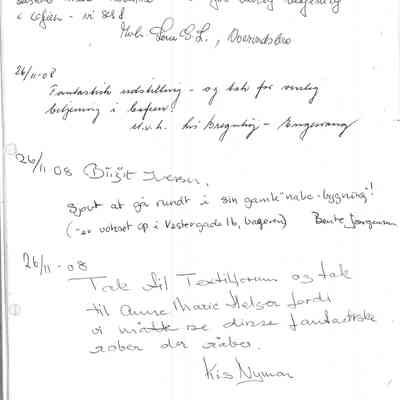 i cafeen - vi ses!
Mvh. Lone E. L.,
26/11-08
Fantastisk udstilling - og tak for venlig
betjening i cafeen!
M.v.h.
26/11 08 Birgit Iversen.
Sjovt at gå rundt i sin gamle "nabo-bygning"!
(- er vokset op i Vestergade 16, bageren) Bente Jørgensen
26/11-08
Tak til Textilforum og tak
til Anne Marie Helger fordi
vi måtte se disse fantastiske
rober der råber.
Kis Nyman